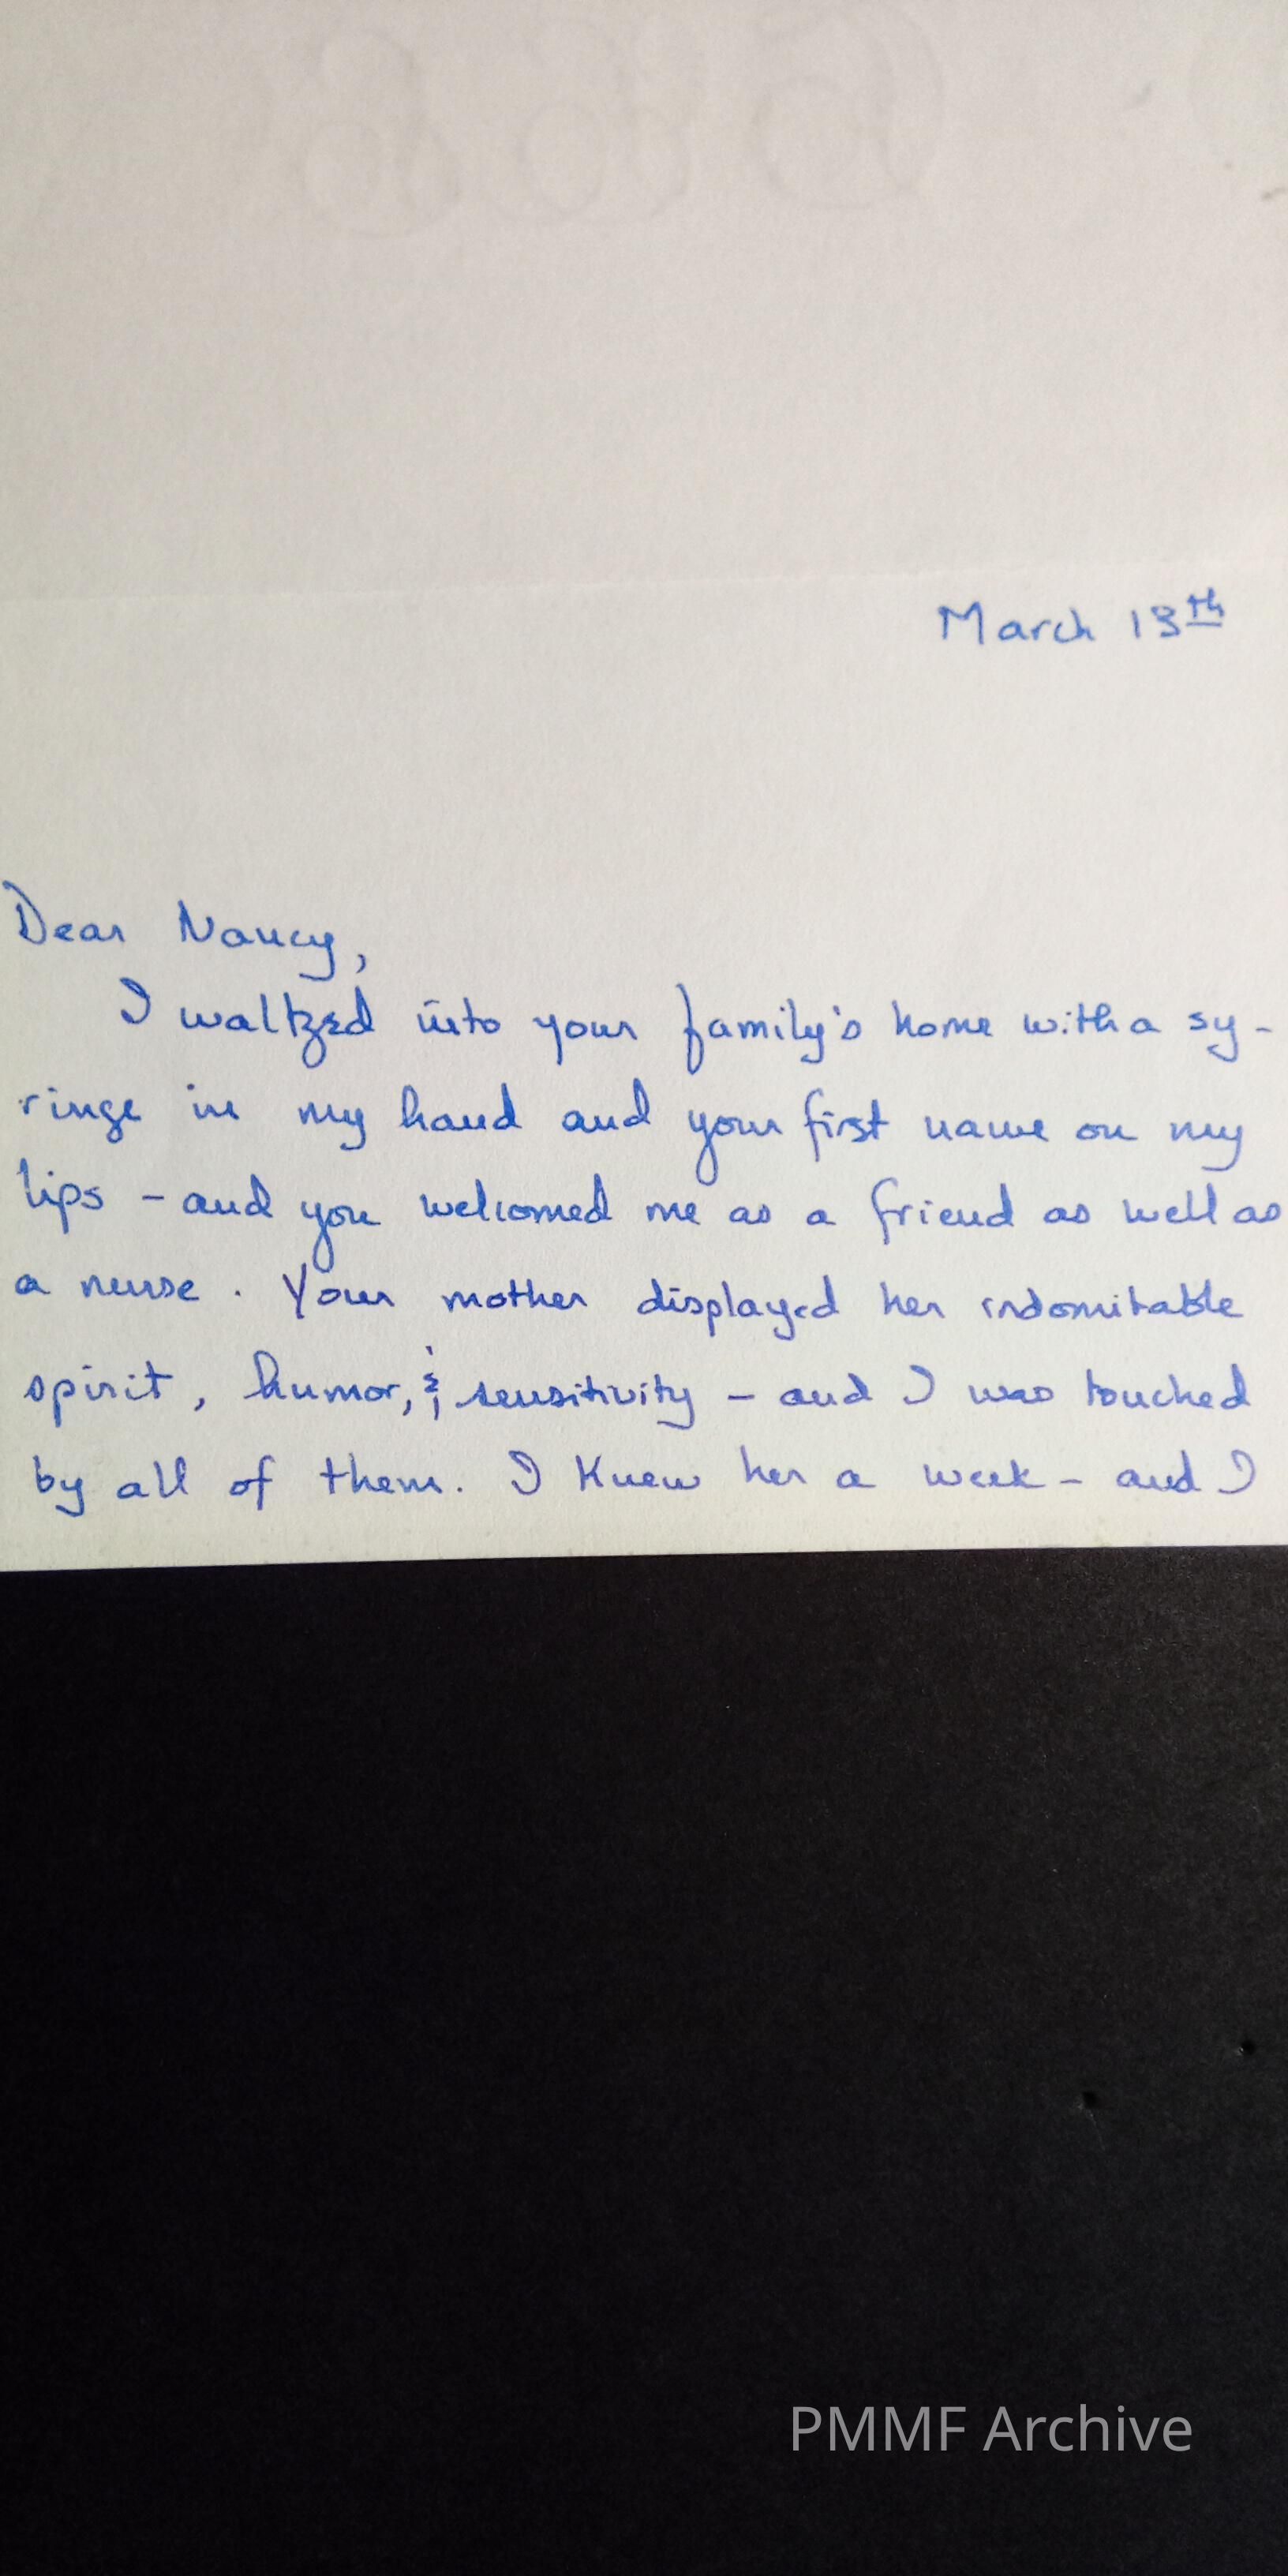 March 13th
Dear Nancy,
I waltzed into your family's home with a sy-
ringe in my hand and your first name on my
lips - and you welcomed me as a friend as well as
a nurse. Your mother displayed her indomitable
spirit, humor, & sensitivity - and I was touched
by all of them. I knew her a week - and I
PMMF Archive